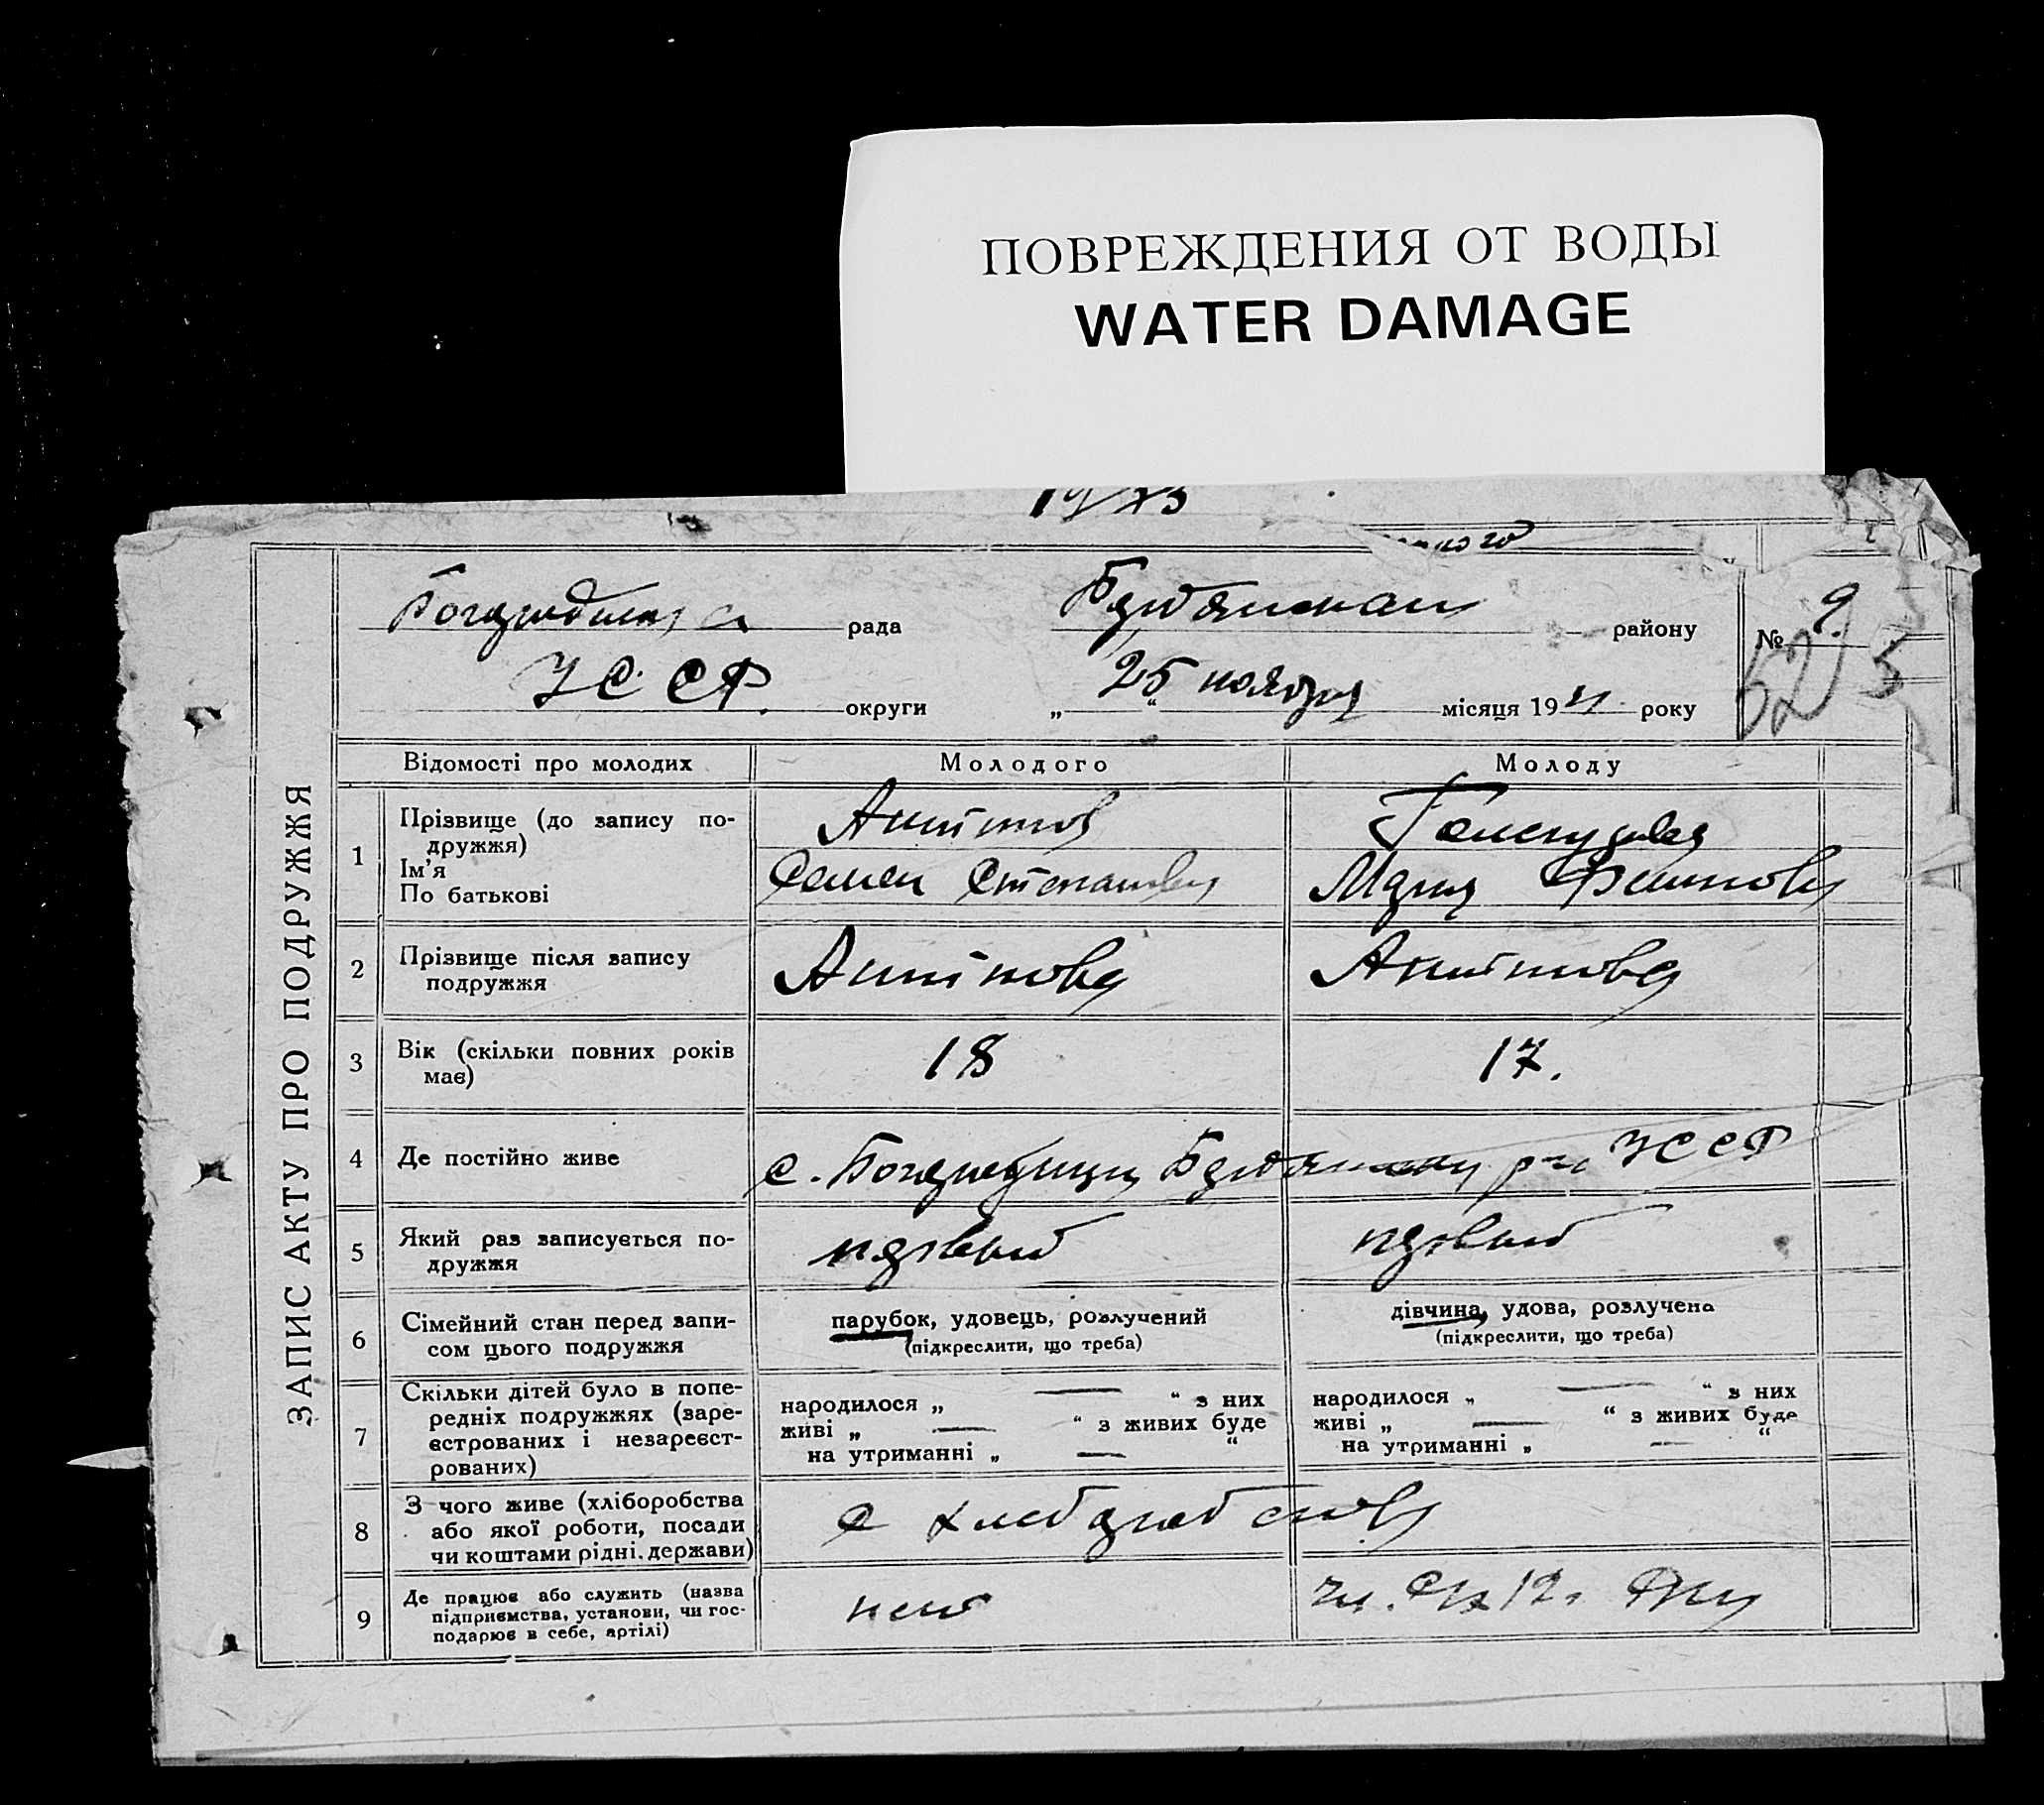 ПОВРЕЖДЕНИЯ ОТ ВОДЫ
WATER DAMAGE
ЗАПИС АКТУ ПРО ПОДРУЖЖЯ
рада району № 9.
523
УССР. округи „25“ ноября місяця 19 року
Відомості про молодих Молодого Молоду
1 Прізвище (до запису по-
дружжя)
Ім'я
По батькові
Антипов
Семен Степанович
Мария
2 Прізвище після запису
подружжя
Антипова Антипова
3 Вік (скільки повних років
має)
18 17.
4 Де постійно живе
с. УССР
5 Який раз записується по-
дружжя
первый первый
6 Сімейний стан перед запи-
сом цього подружжя
парубок, удовець, розлучений
(підкреслити, що треба)
дівчина, удова, розлучена
(підкреслити, що треба)
7 Скільки дітей було в попе-
редніх подружжях (заре-
єстрованих і незареєст-
рованих)
народилося „ — “ з них
живі „ — “ з живих буде
на утриманні „ — “
народилося „ — “ з них
живі „ — “ з живих буде
на утриманні „ — “
8 З чого живе (хліборобства
або якої роботи, посади
чи коштами рідні. держави)
с
9 Де працює або служить (назва
підприємства, установи, чи гос-
подарює в себе, артілі)
нет